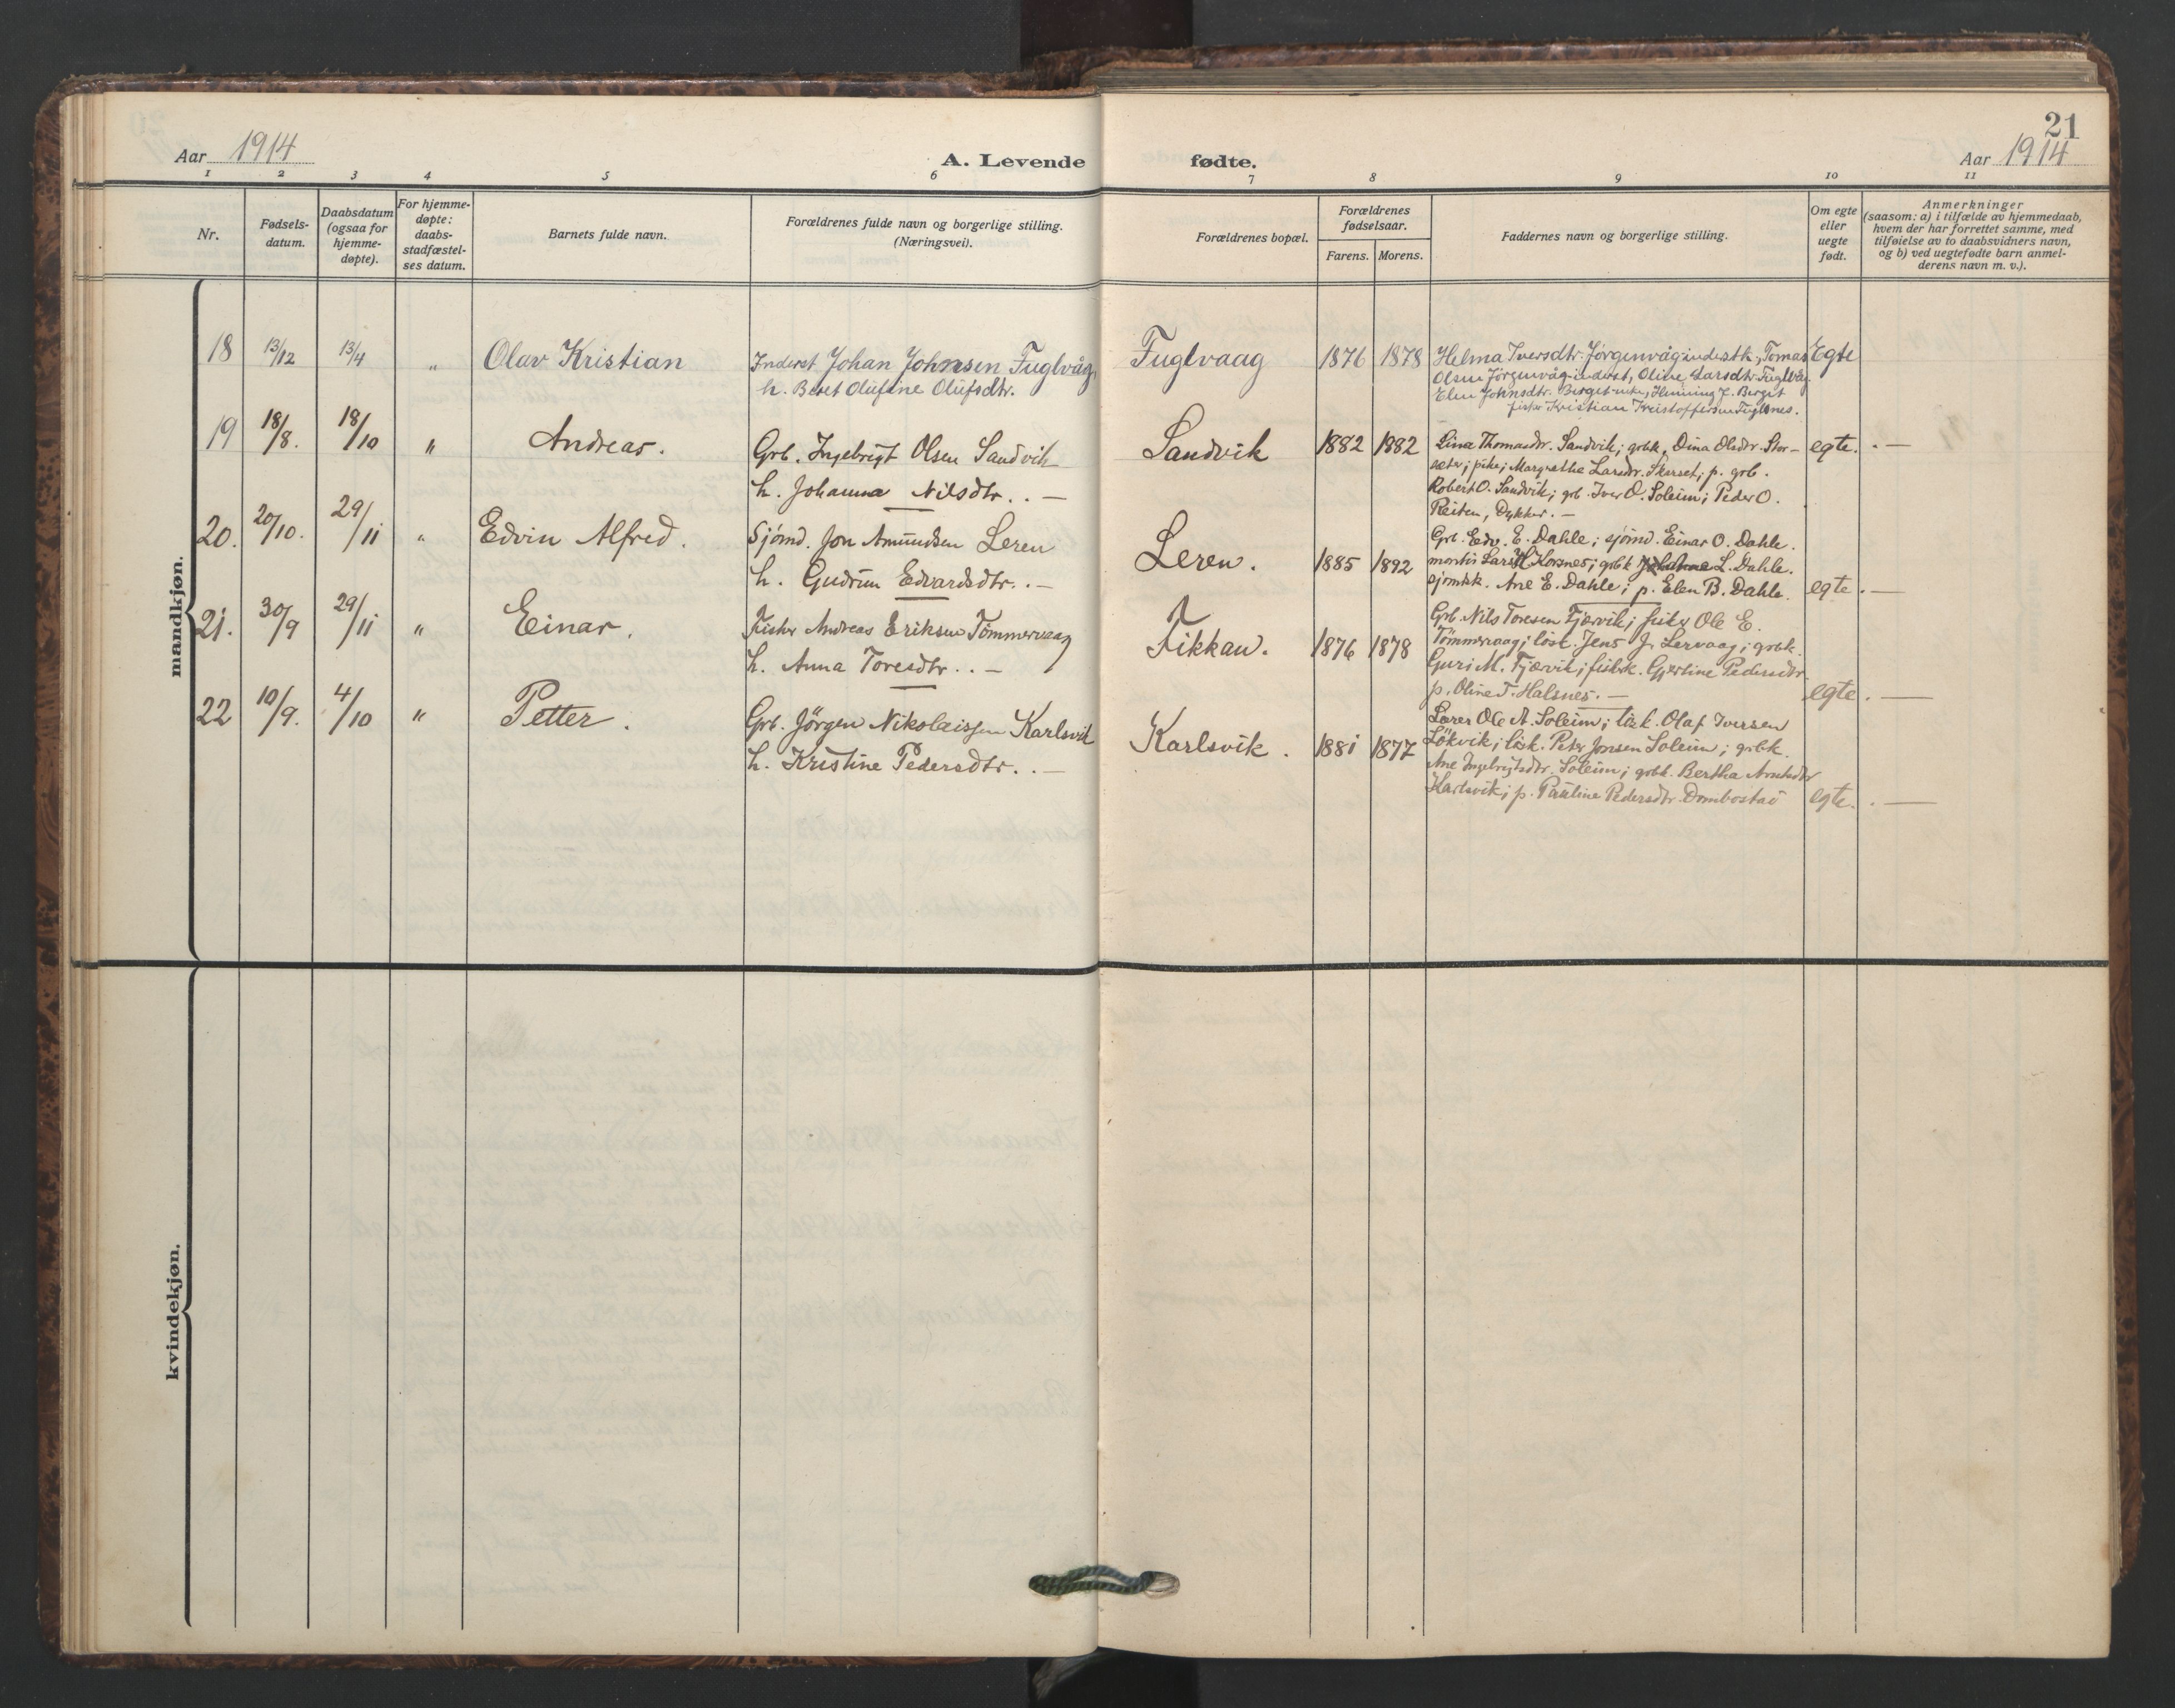 21
Aar 1914
A. Levende
fødte.
Aar 1914
1 2 3 4 5 6 7 8 9 10 11
Nr.
Fødsels-
datum.
Daabsdatum
(ogsaa for
hjemme-
døpte).
For hjemme-
døpte:
daabs-
stadfæstel-
ses datum.
Barnets fulde navn.
Forældrenes fulde navn og borgerlige stilling.
(Næringsvei).
Forældrenes bopæl.
Forældrenes
fødselsaar.
Farens. Morens.
Faddernes navn og borgerlige stilling.
Om egte
eller
uegte
født.
Anmerkninger
(saasom: a) i tilfælde av hjemmedaab,
hvem der har forrettet samme, med
tilføielse av to daabsvidners navn,
og b) ved uegtefødte barn anmel-
derens navn m. v.).
mandkjøn.
18 13/12 13/4 " Olav Kristian
Inderst Johan Johnsen Fuglvåg,
h. Beret Olufine Olufsdtr.
Fuglvaag 1876 1878
Helma Iversdtr. Jørgenvåg inderstk, Tomas
Olsen Jørgenvåg inderst, Oline Larsdtr. Fuglvåg
Elen Johnsdtr. Berget Henning J. Berget
fisker Kristian Kristoffersen Fuglsnes.
Egte
19 18/8. 18/10 " Andreas.
Grb. Ingebrigt Olsen Sandvik
h. Johanna Nilsdtr. . —
Sandvik 1882 1882
Lina Thomasdr. Sandvik; grbk, Dina Olsdtr. Stor-
sæter; pike; Margrethe Larsdr. Skarset; p. grb.
Robert O. Sandvik; grb. Iver O. Soleim; Peder O.
Reiten, Dykker. —
egte. . —
20. 20/10. 29/11 " Edvin Alfred.
Sjömd. Jon Amundsen Leren
h. Gudrun Edvardsdtr. . —
Leren. 1885 1892
Grb. Edv. E. Dahle; sjömd. Einar O. Dahle.
Lars H Korsnes; grbk L. Dahle.
sjomkk. Ane E. Dahle; p. Elen B. Dahle.
egte . —
21. 30/9 29/11 " Einar.
Fisker Andreas Eriksen Tömmervaag
h. Anna Toresdtr. . —
Fikkan. 1876 1878
Grb. Nils Toresen Fjærvik; fisker Ole E.
Tömmervaag; lösk. Jens J. Lervaag; grbk.
Guri M. Fjærvik; fiskk. Gjertine Pedersdtr
p. Oline T. Halsnes. —
egte. —
22 10/9. 4/10 " Petter.
Grb. Jörgen Nikolaissen Karlsvik
h. Kristine Pedersdtr. . —
Karlsvik. 1881 1877
Lærer Ole A. Soleim; lösk. Olaf Iversen
Lökvik; lösk. Peter Jonsen Soleim; grbk.
Ane Ingebrigtsdtr. Soleim; grbk. Bertha
Karlsvik; p. Pauline Pedersdtr. Drombostad
egte. . —
kvindekjøn.